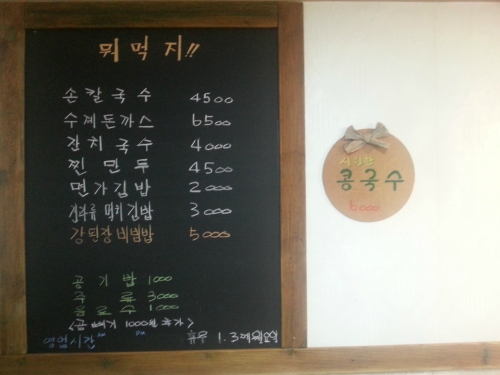 뭐먹지!!
손칼국수 4500
수제돈까스 6500
잔치국수 4000
찐만두 4500
면가김밥 2000
견과류 멸치김밥 3000
강된장비빔밥 5000
공기밥 1000
주류 3000
음료수 1000
<곱빼기 1000원 추가>
영업시간 AM PM
휴무 1.3째 월요일
시원한
콩국수
6000